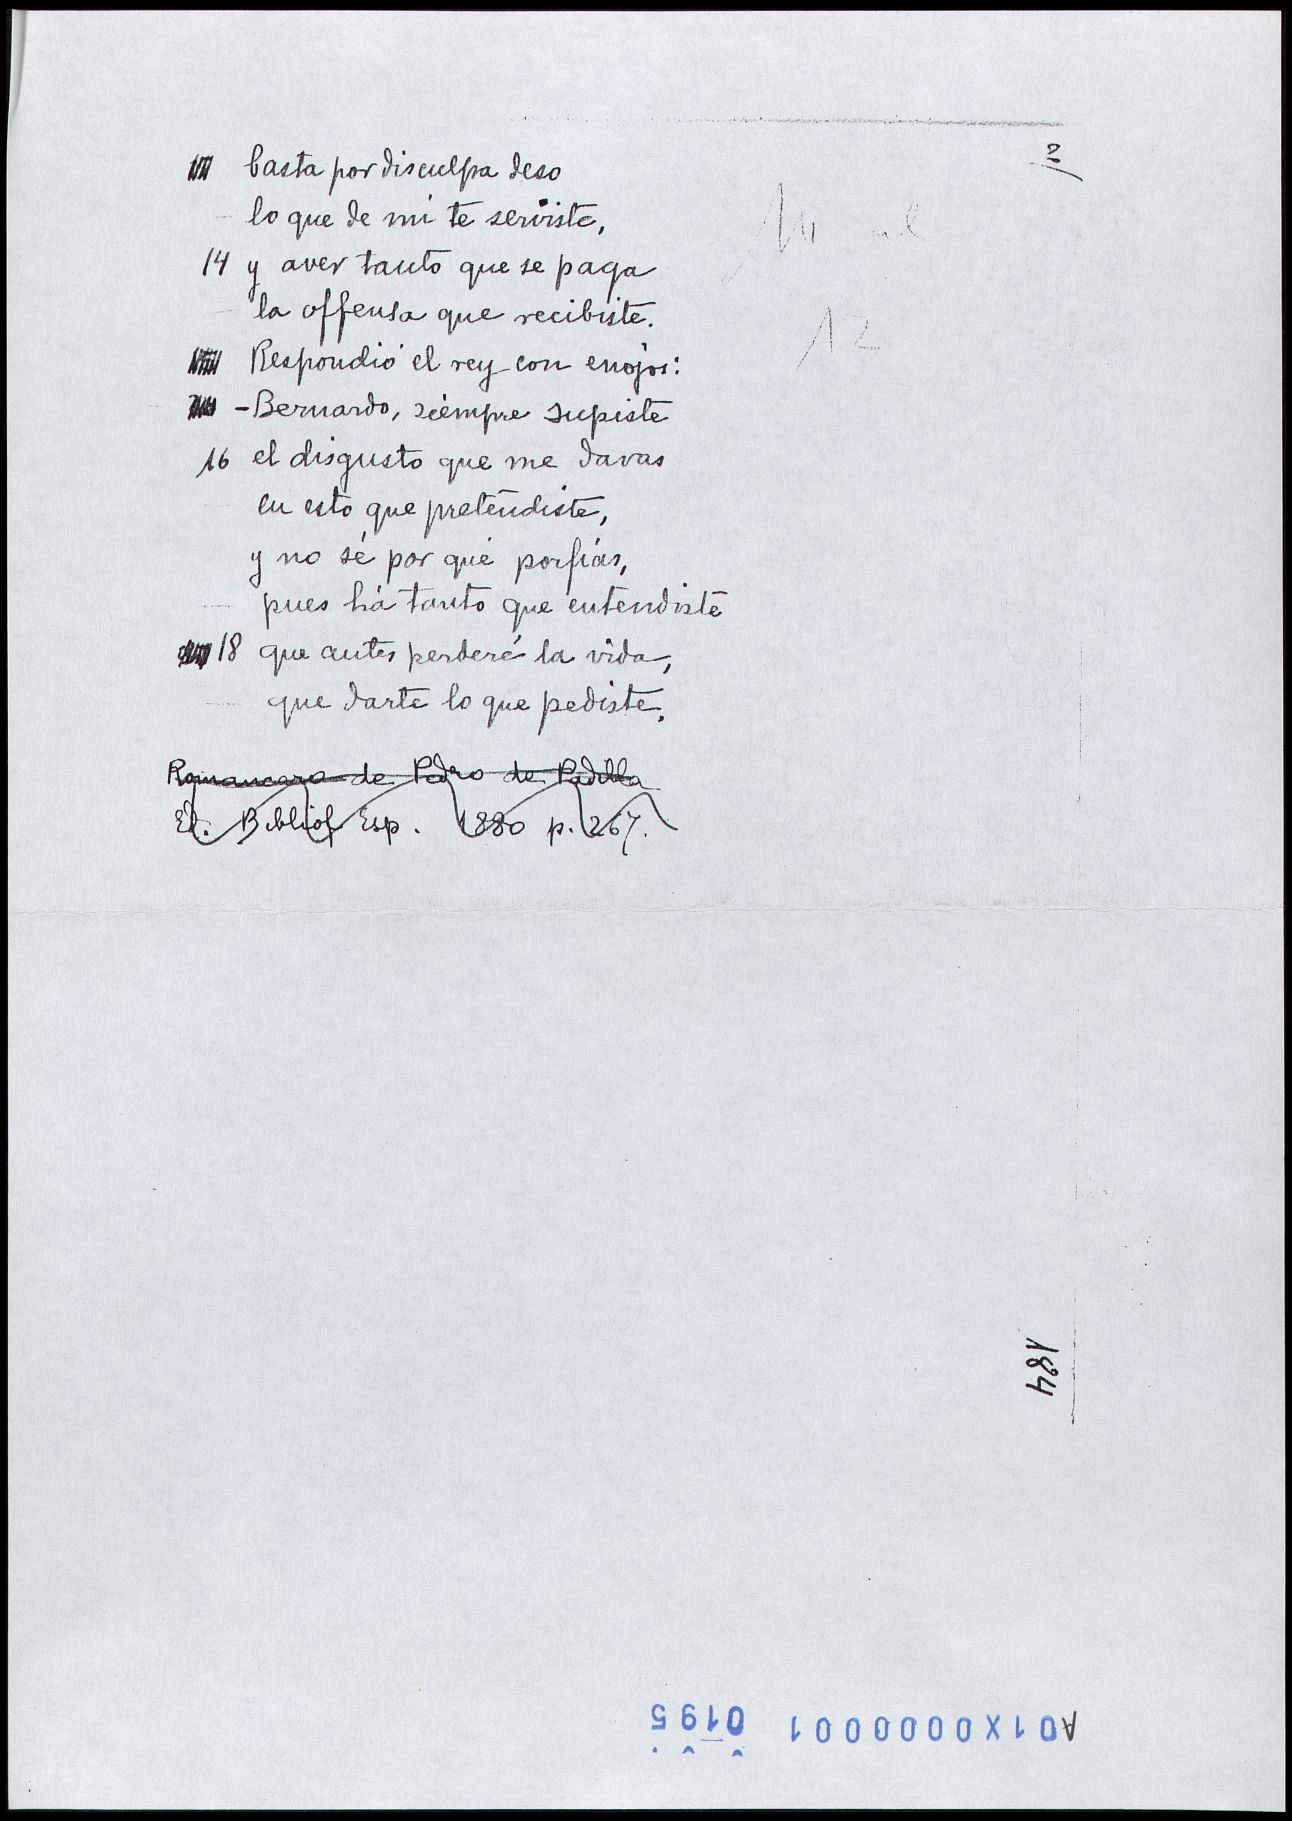 2
basta por disculpa deso
lo que de mí te serviste,
14 y aver tanto que se paga
la offensa que recibiste.
Respondió el rey con enojos:
-Bernardo, siempre supiste
16 el disgusto que me davas
en esto que pretendiste,
y no sé por qué porfías,
pues há tanto que entendiste
18 que antes perderé la vida,
que darte lo que pediste.
Romancero de Pedro de Padilla
Ed. Bibliof Esp. 1880 p. 267.
12
184
A01X0000001 0195